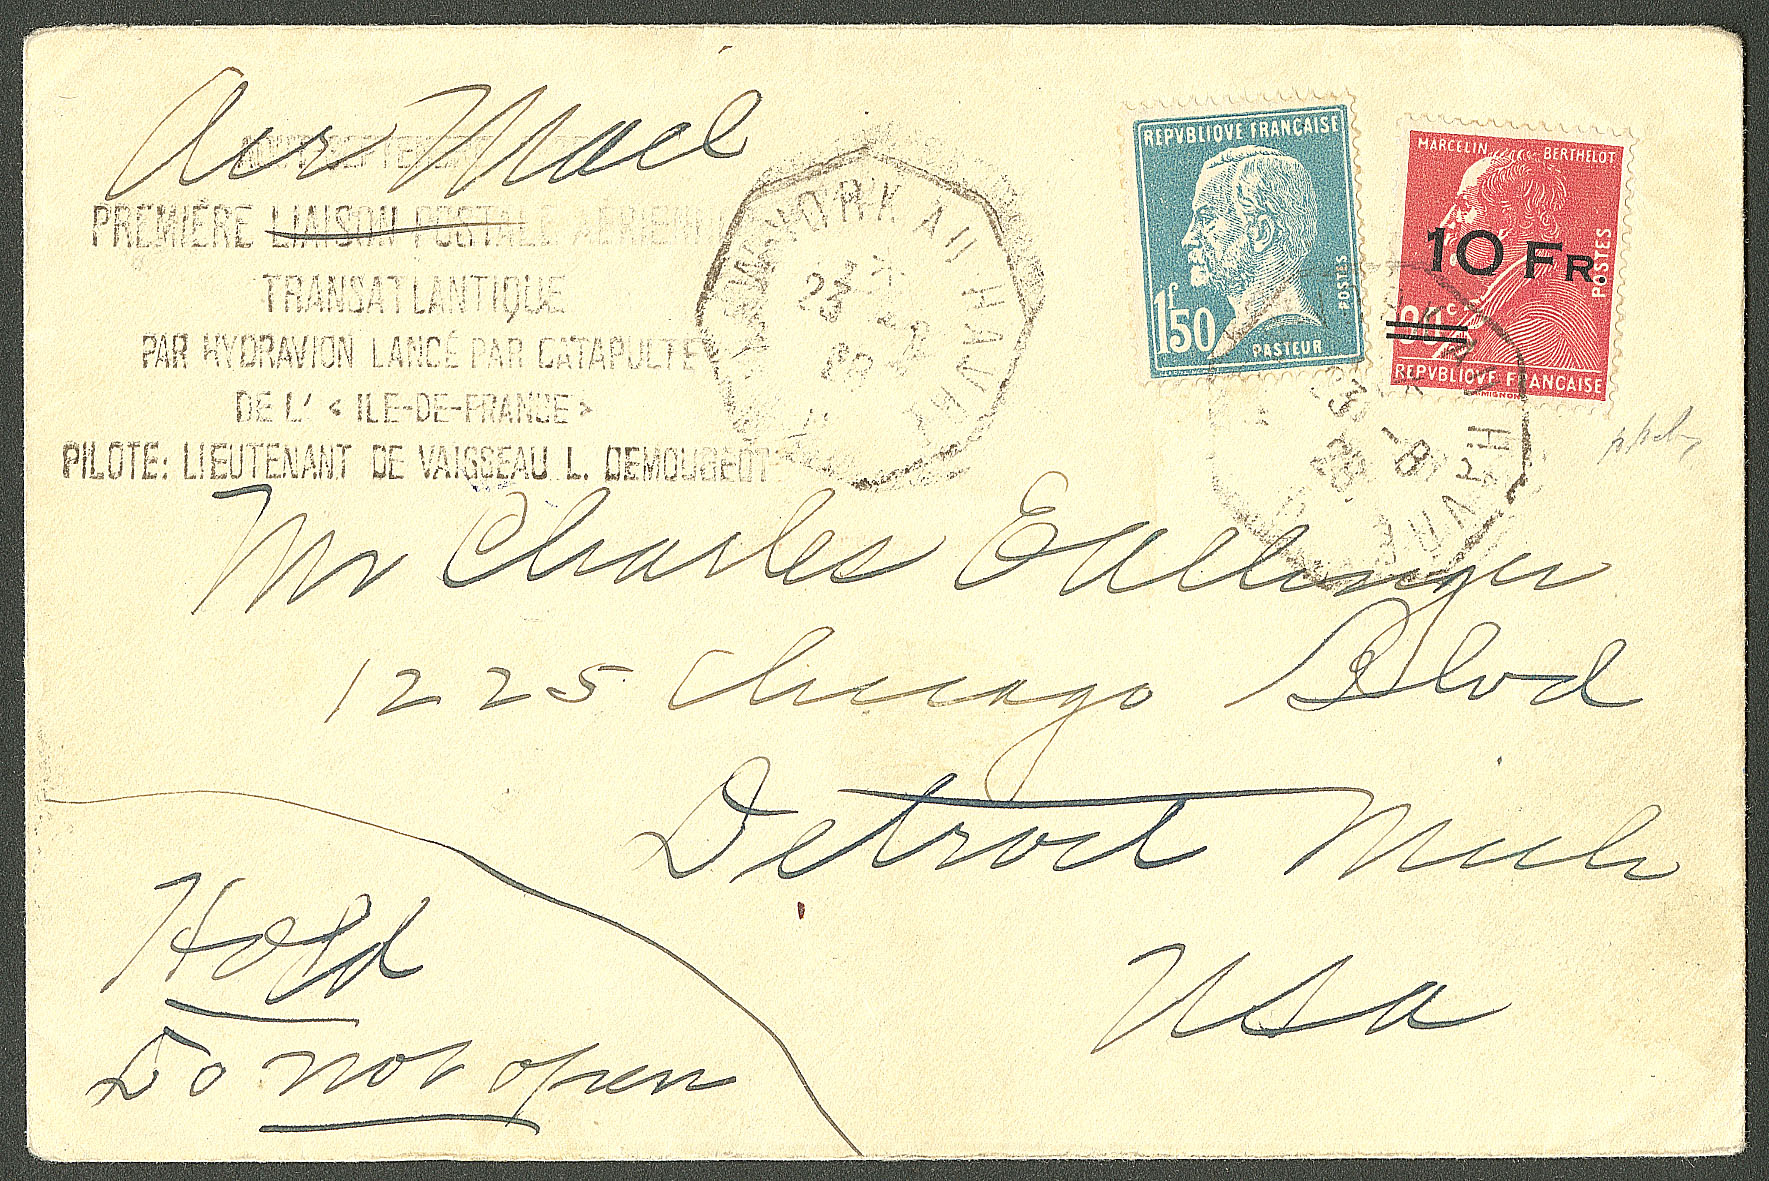 Air Mail
PREMIÈRE LIAISON POSTALE AÉRIENNE
TRANSATLANTIQUE
PAR HYDRAVION LANCÉ PAR CATAPULTE
DE L' < ILE-DE-FRANCE >
PILOTE: LIEUTENANT DE VAISSEAU L. DEMOUGEOT
YORK AU HAVRE
23 -8
28
REPVBLIQVE FRANÇAISE
1f50
POSTES
PASTEUR
MARCELIN BERTHELOT
10 FR.
POSTES
90c
REPVBLIQVE FRANÇAISE
HAVRE
23 -8
28
Mr Charles
1225 Chicago Blvd
Detroit Mich
USA
Hold
Do not open